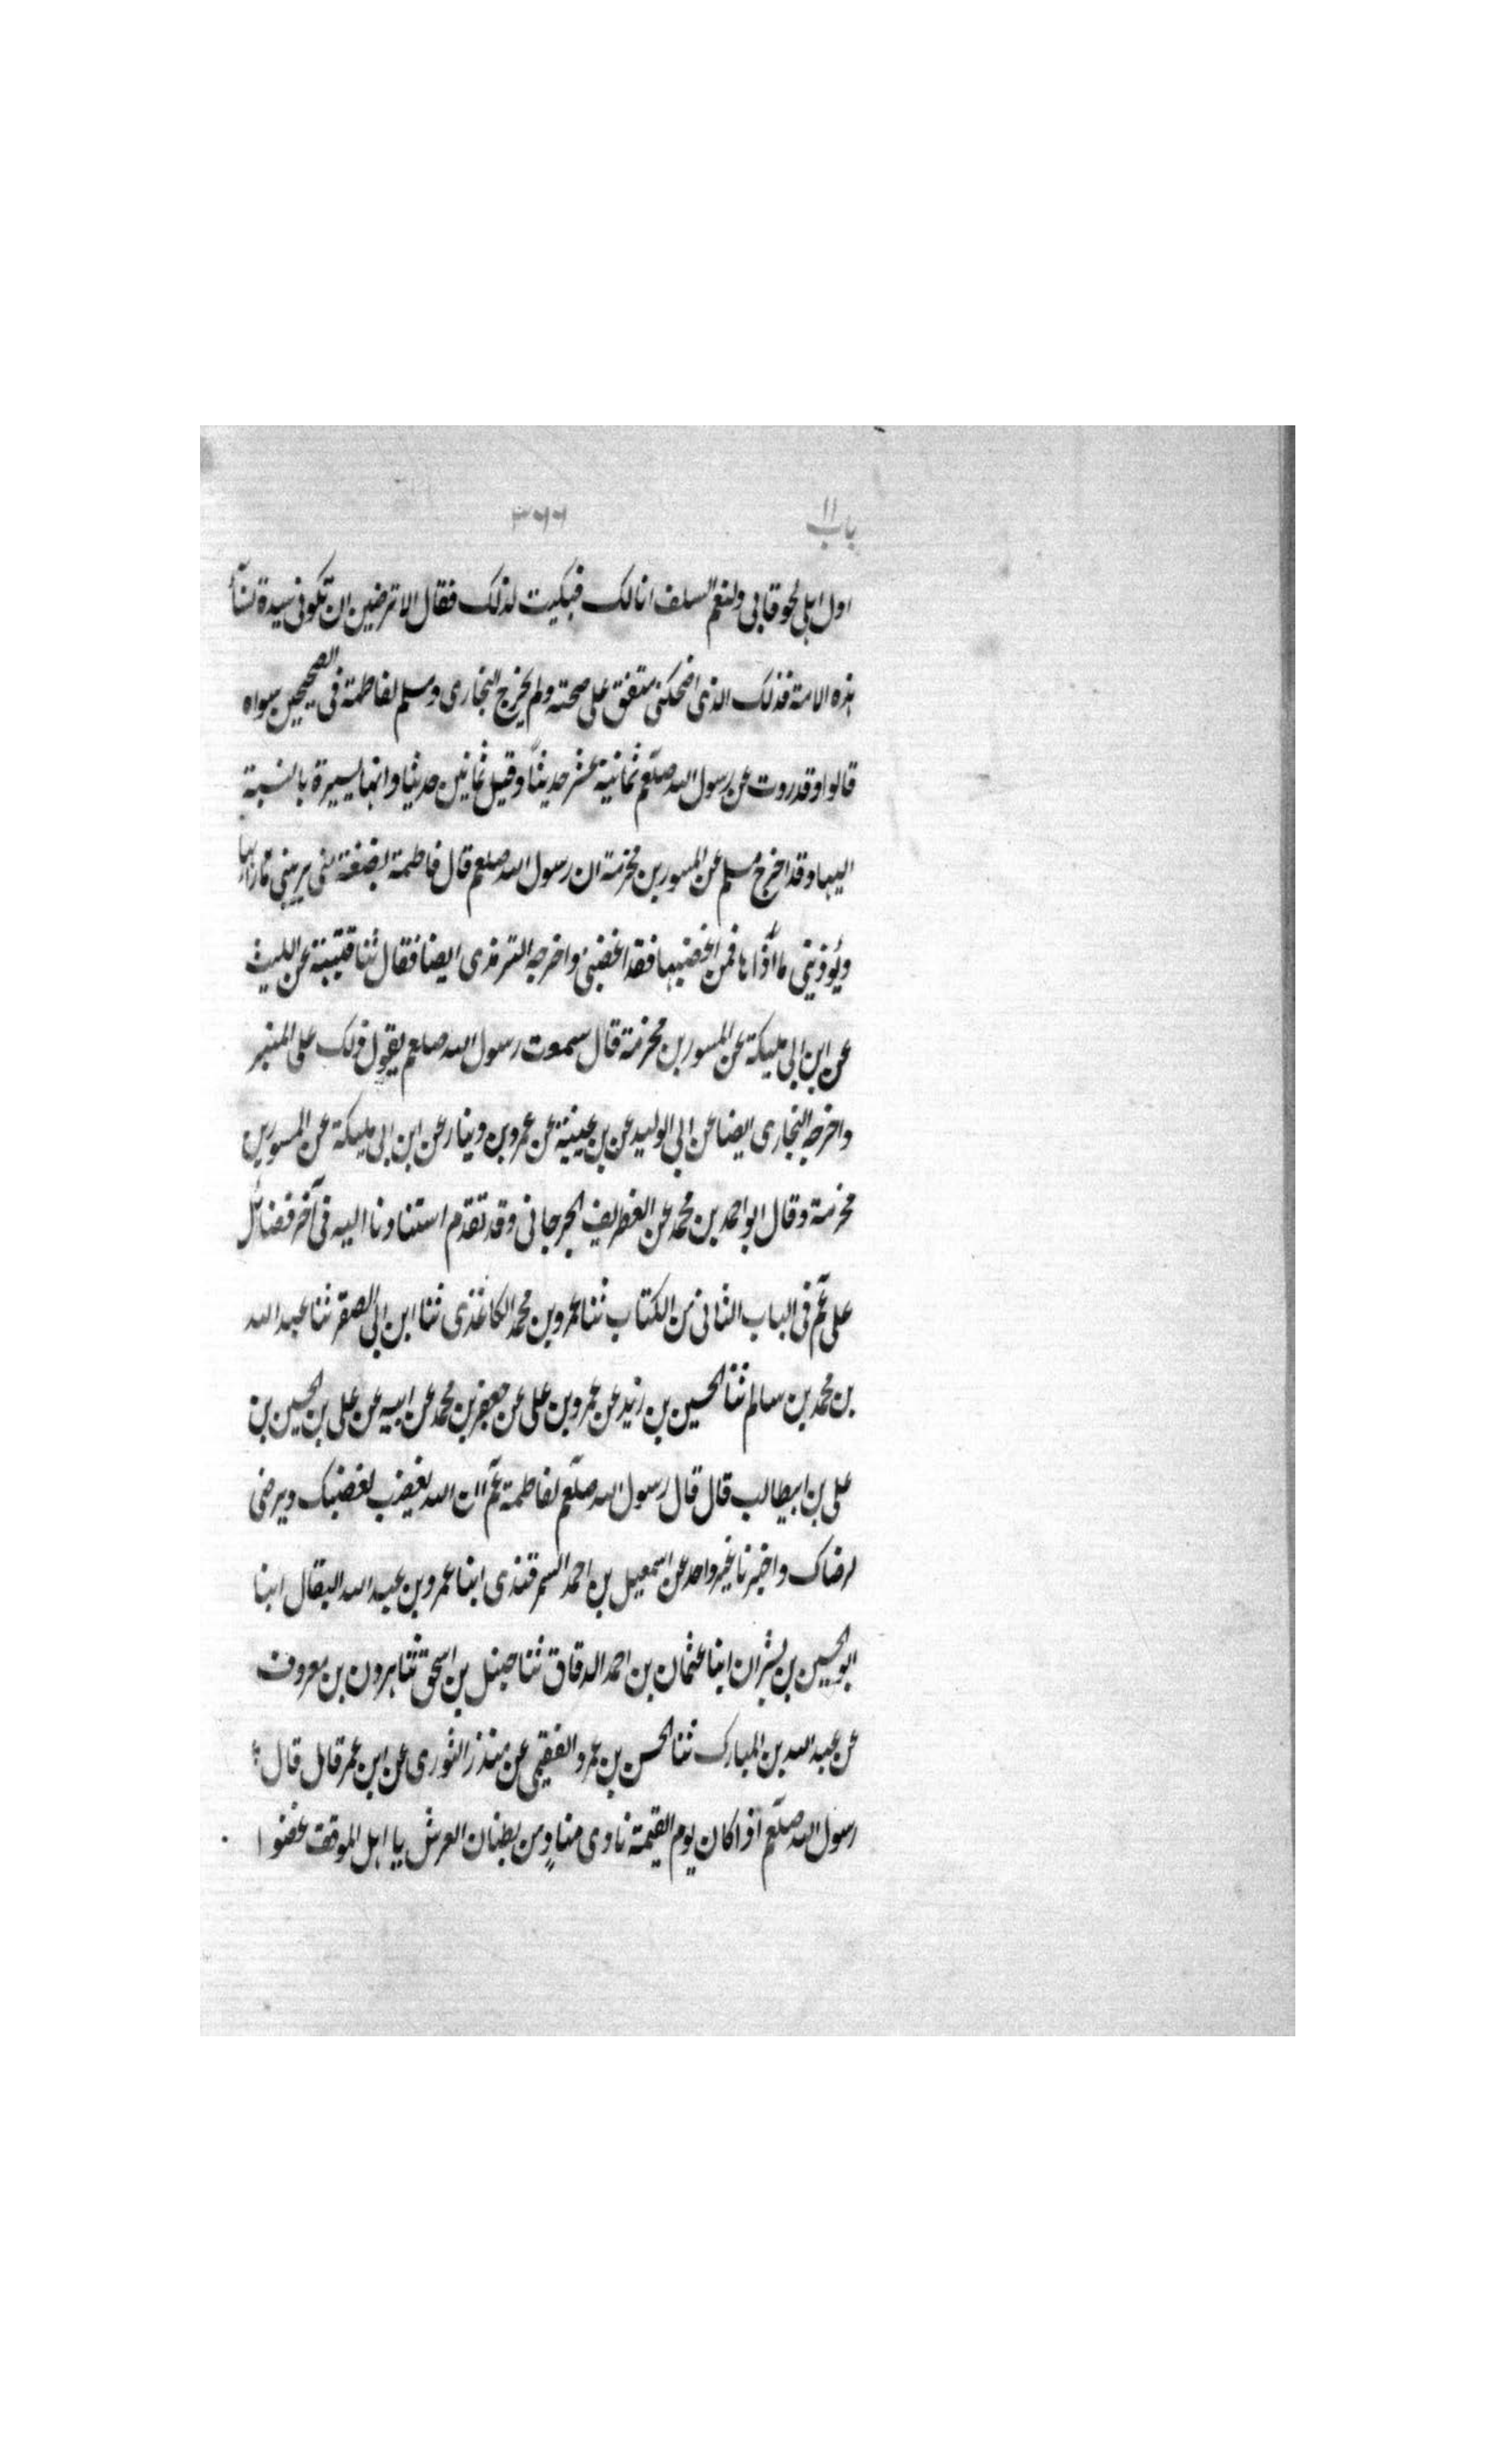 باب ١١
٣٦٦
اول اهلى لحوقا بى ولنعم السلف انا لك فبكيت لذلك فقال الا ترضين ان تكونى سيدة نسآء
هذه الامة فذلك الذى اضحكنى متفق على صحته ولم يخرج البخارى ومسلم لفاطمة فى الصحيحين سواه
قالوا وقد روت عن رسول الله صلعم ثمانية عشر حديثاً وقيل ثمانين حديثا وانها يسيرة بالنسبة
اليها وقد اخرج مسلم عن المسور بن مخرمة ان رسول الله صلعم قال فاطمة بضعة منى يريبنى ما رابها
ويُوذينى ما آذاها فمن اغضبها فقد اغضبنى واخرجه الترمذى ايضا فقال ثنا قتيبة عن الليث
عن ابن ابى مليكة عن المسور بن مخرمة قال سمعت رسول الله صلعم يقول ذلك على المنبر
واخرجه البخارى ايضا عن ابى الوليد عن بن عيينة عن عمرو بن دينار عن ابن ابى مليكة عن المسور بن
مخرمة وقال ابو احمد بن محمد عن الغطريف الجرجانى وقد تقدم استنادنا اليه فى آخر فضائل
على عم فى الباب الثانى من الكتاب ثنا عمرو بن محمد الكاغذى ثنا ابن ابى الصقر ثنا عبد الله
بن محمد بن سالم ثنا الحسين بن زيد عن عمرو بن على عن جعفر بن محمد عن ابيه عن على بن الحسين بن
على بن ابيطالب قال قال رسول الله صلعم لفاطمة عم ان الله يغضب لغضبك ويرضى
لرضاك واخبرنا غير واحد عن اسمعيل بن احمد السمرقندى ابنا عمرو بن عبيد الله البقال ابنا
ابو الحسين بن بشران ابنا عثمان بن احمد الدقاق ثنا حنبل بن اسحق ثنا هرون بن معروف
عن عبد الله بن المبارك ثنا الحسن بن عمرو الفقيمى عن منذر الثورى عن ابن عمر قال قال
رسول الله صلعم اذا كان يوم القيمة نادى منادٍ من بطنان العرش يا اهل الموقف غضوا